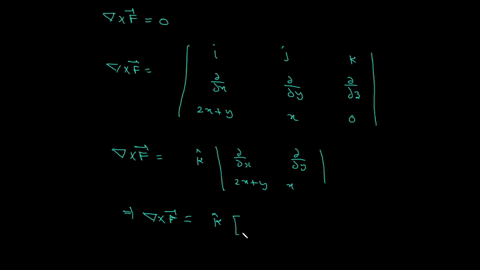 ∇×F⃗ = 0
∇×F⃗ = | i j k
∂/∂x ∂/∂y ∂/∂z
2x+y x 0 |
∇×F⃗ = k̂ | ∂/∂x ∂/∂y
2x+y x |
⇒ ∇×F⃗ = k̂ [